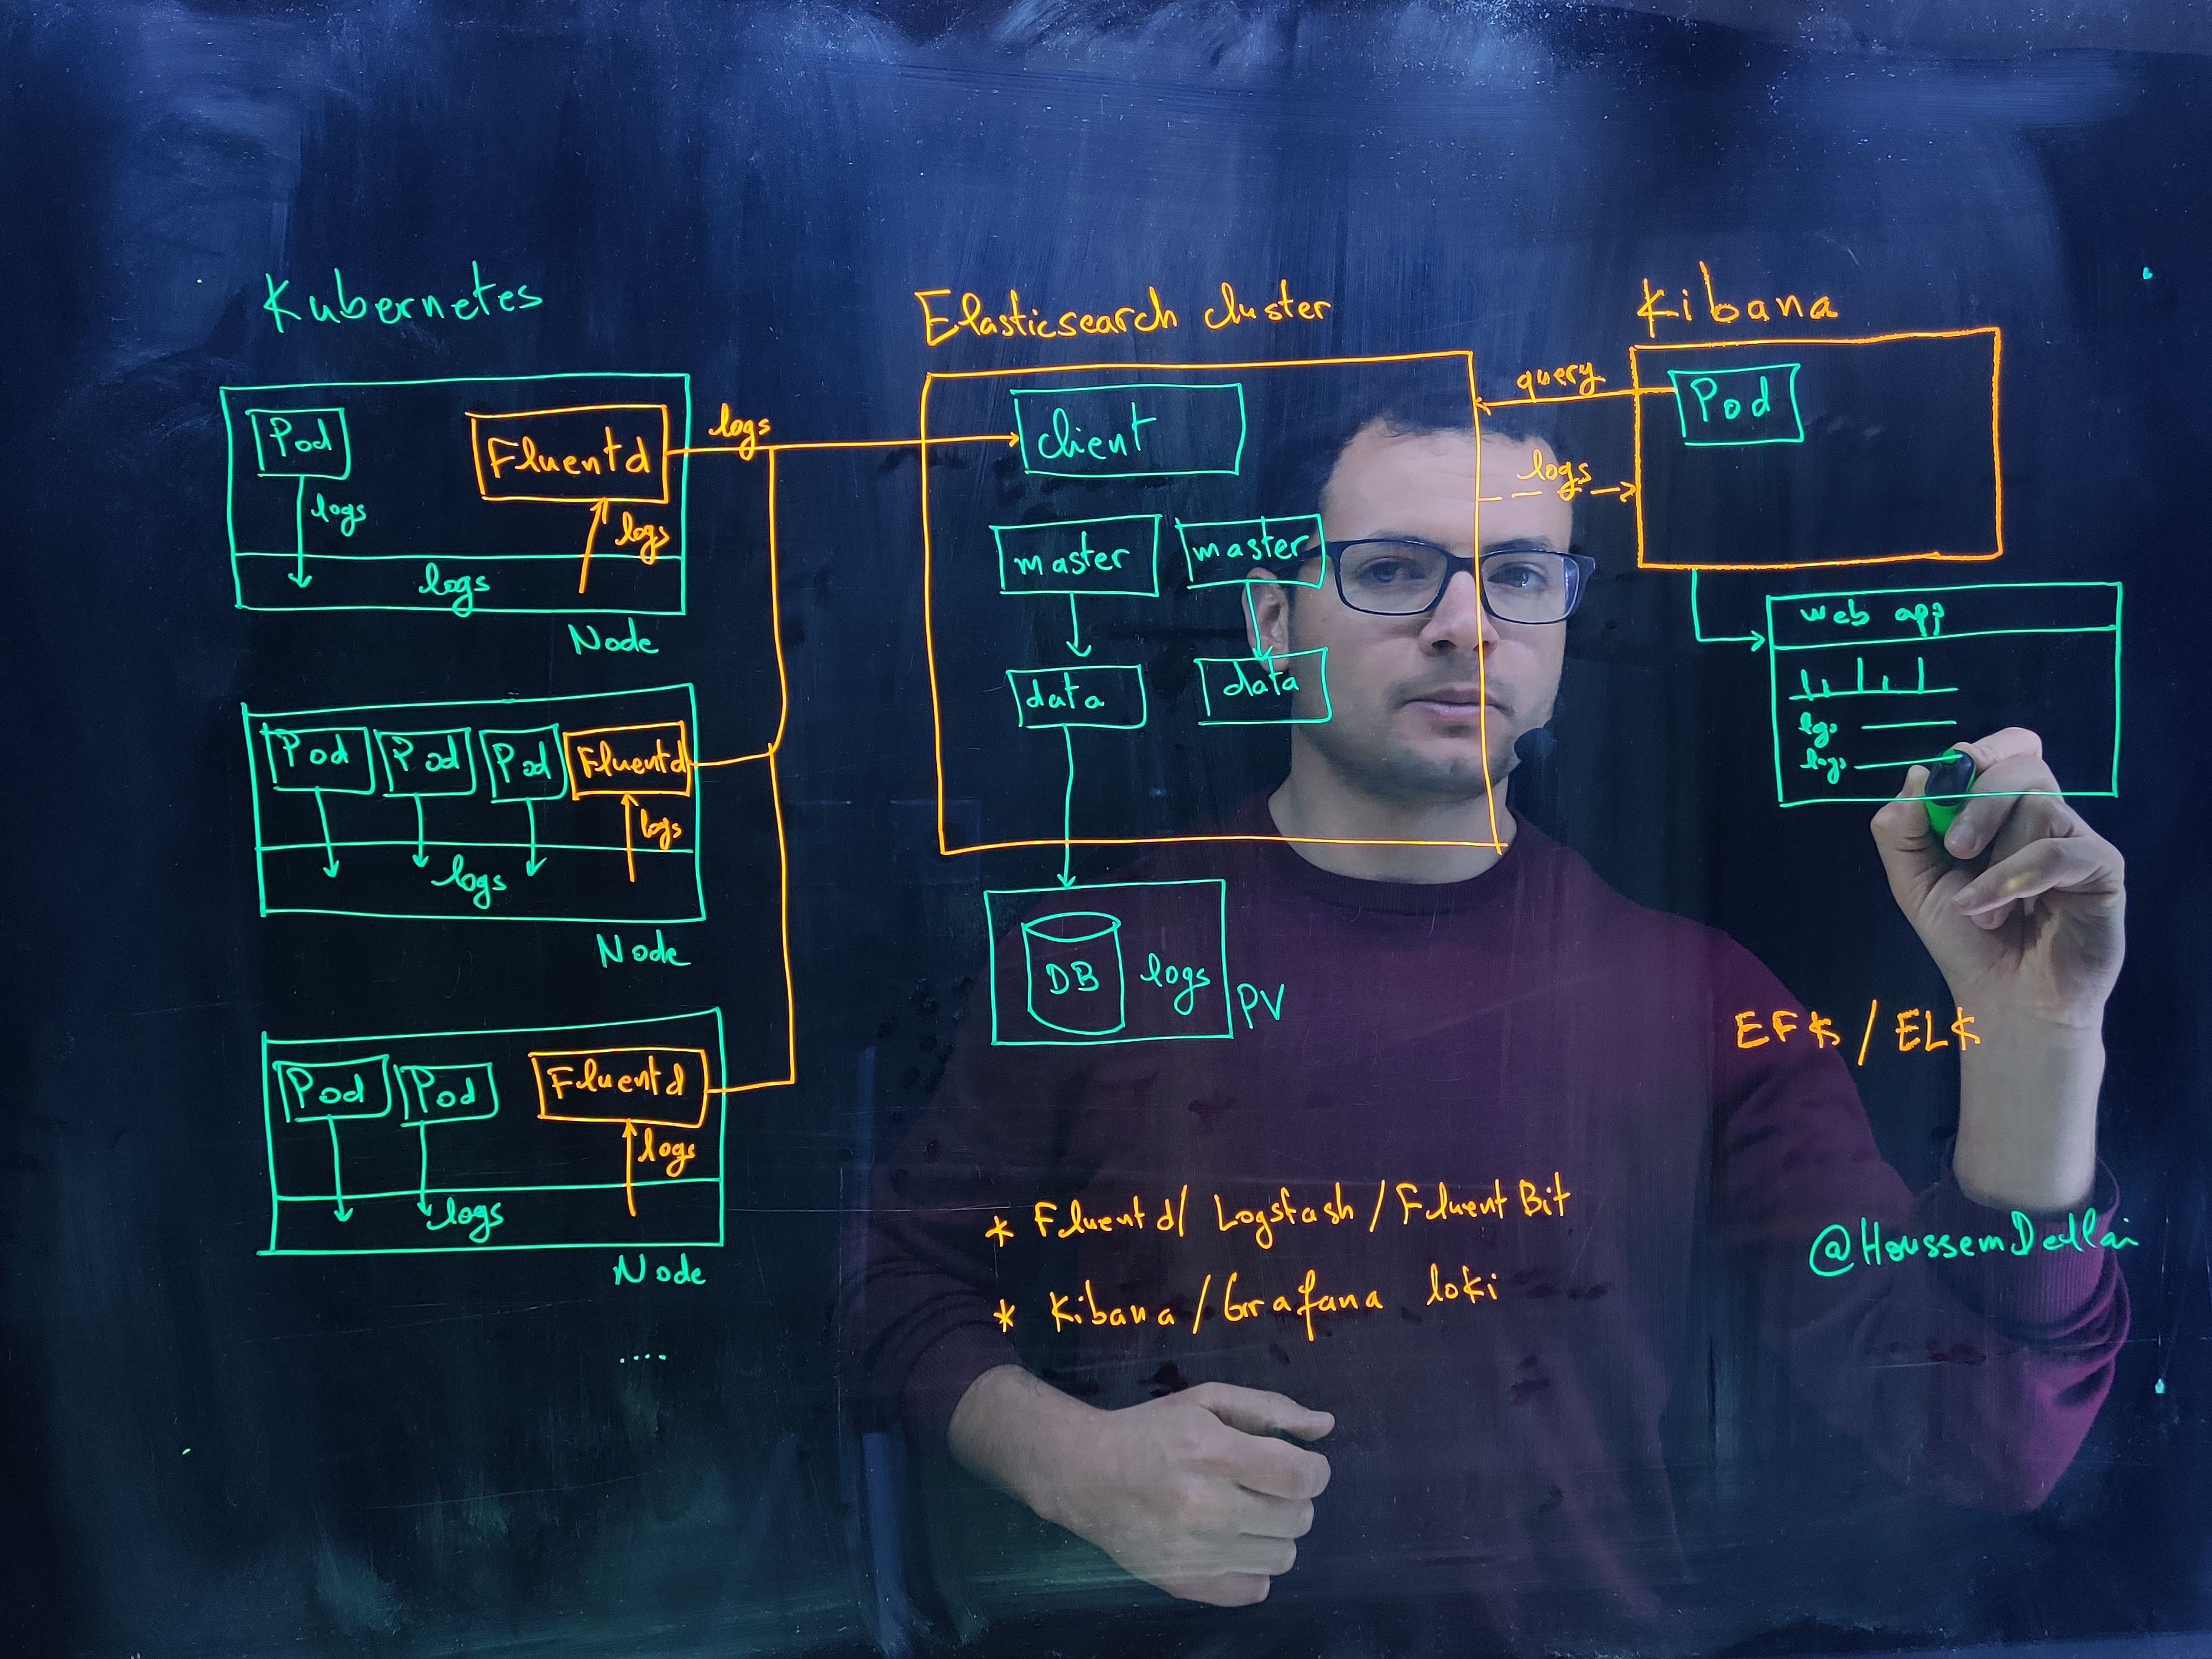 Kubernetes
Pod
Fluentd
logs
logs
logs
Node
logs
Pod
Pod
Pod
Fluentd
logs
logs
Node
Pod
Pod
Fluentd
logs
logs
Node
....
Elasticsearch cluster
client
master
master
data
data
DB
logs
PV
query
logs
Kibana
Pod
web app
logs
logs
EFK / ELK
* Fluentd/ Logstash / Fluent Bit
* Kibana / Grafana loki
@HoussemDellai